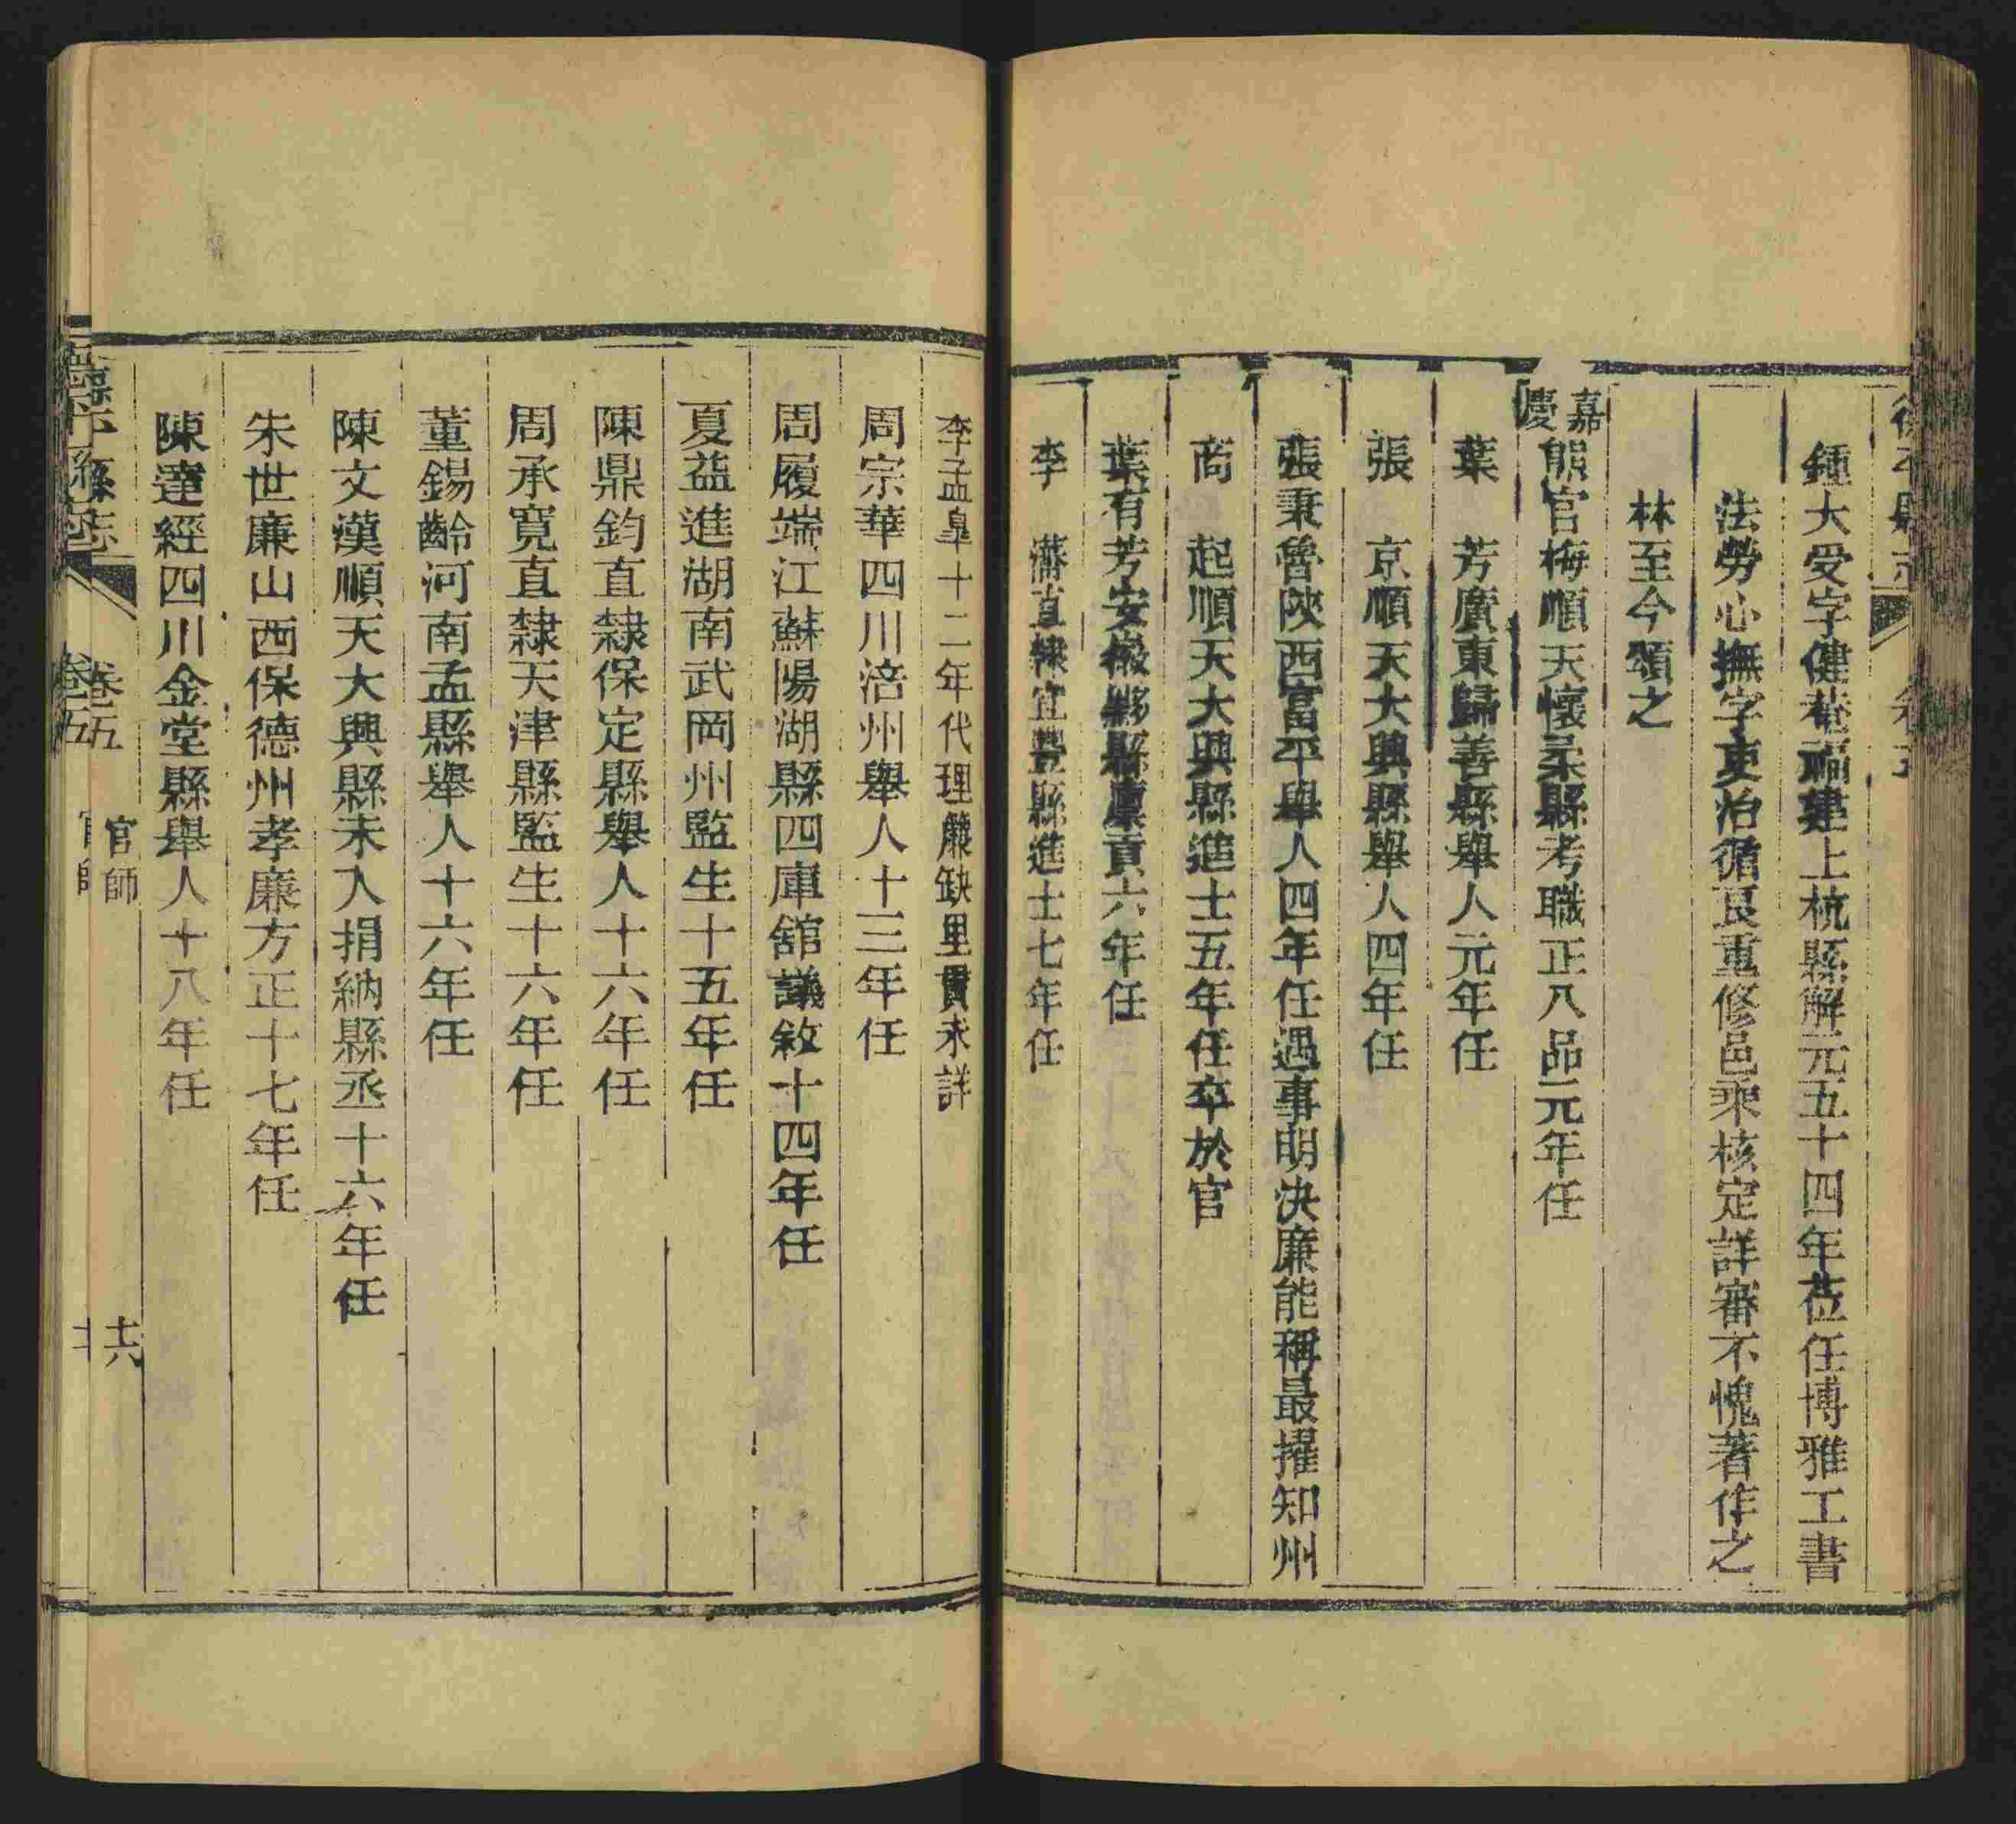 鍾大受字健菴福建上杭縣解元五十四年莅任博雅工書
法勞心撫字吏治循良重修邑乘核定詳審不愧著作之
林至今頌之
嘉慶
熊官梅順天懷柔縣考職正八品元年任
葉　芳廣東歸善縣舉人元年任
張　京順天大興縣舉人四年任
張秉魯陝西富平舉人四年任遇事明決廉能稱最擢知州
商　起順天大興縣進士五年任卒於官
葉有芳安徽黟縣廩貢六年任
李　藩直隸宜豐縣進士七年任
李孟臯十二年代理嚴缺里貫未詳
周宗華四川涪州舉人十三年任
周履端江蘇陽湖縣四庫館議敘十四年任
夏益進湖南武岡州監生十五年任
陳鼎鈞直隸保定縣舉人十六年任
周承寬直隸天津縣監生十六年任
董錫齡河南孟縣舉人十六年任
陳文漢順天大興縣未入捐納縣丞十六年任
朱世廉山西保德州孝廉方正十七年任
陳達經四川金堂縣舉人十八年任
德平縣志
卷五
官師
十六